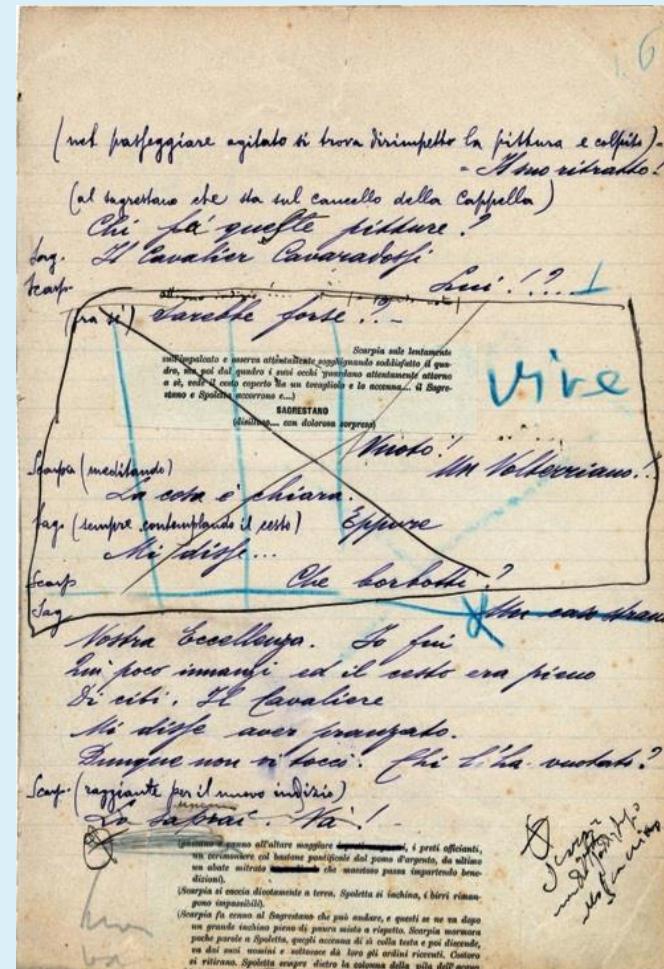 6
(nel passeggiare agitato si trova dirimpetto la pittura e colpito)-
- Il suo ritratto!
(al sagrestano che sta sul cancello della Cappella)
Chi fa' queste pitture?
Sag. Il Cavalier Cavaradossi
Scarp. Lui!?...
(fra sè) Sarebbe forse!?-
Scarpia sale lentamente
sull'impalcato e osserva attentamente sogghignando soddisfatto il qua-
dro, ma poi dal quadro i suoi occhi guardano attentamente attorno
a sè, vede il cesto coperto da un tovagliolo e lo accenna... il Sagre-
stano e Spoletta accorrono e....)
vive
SAGRESTANO
(disilluso.... con dolorosa sorpresa)
Vuoto!
Un Volterriano!..
Scarpia (meditando)
La cosa è chiara.
Sag. (sempre contemplando il cesto) Eppure
Mi disse...
Scarp Che borbotti?
Sag Un caso strano
Vostra Eccellenza. Io fui
Qui poco innanzi ed il cesto era pieno
Di cibi. Il Cavaliere
Mi disse aver pranzato.
Dunque non vi toccò. Chi l'ha vuotato?
Scarp. (raggiante per il nuovo indizio)
Lo saprai. Va!
all'altare maggiore i preti officianti,
un cerimoniere col bastone pontificale dal pomo d'argento, da ultimo
un abate mitrato che maestoso passa impartendo bene-
dizioni).
(Scarpia si caccia divotamente a terra, Spoletta si inchina, i birri riman-
gono impassibili).
(Scarpia fa cenno al Sagrestano che può andare, e questi se ne va dopo
un grande inchino pieno di paura misto a rispetto. Scarpia mormora
poche parole a Spoletta, quegli accenna di sì colla testa e poi discende,
va dai suoi uomini e sottovoce dà loro gli ordini ricevuti. Costoro
si ritirano. Spoletta sempre dietro la colonna della pila dell'acqua